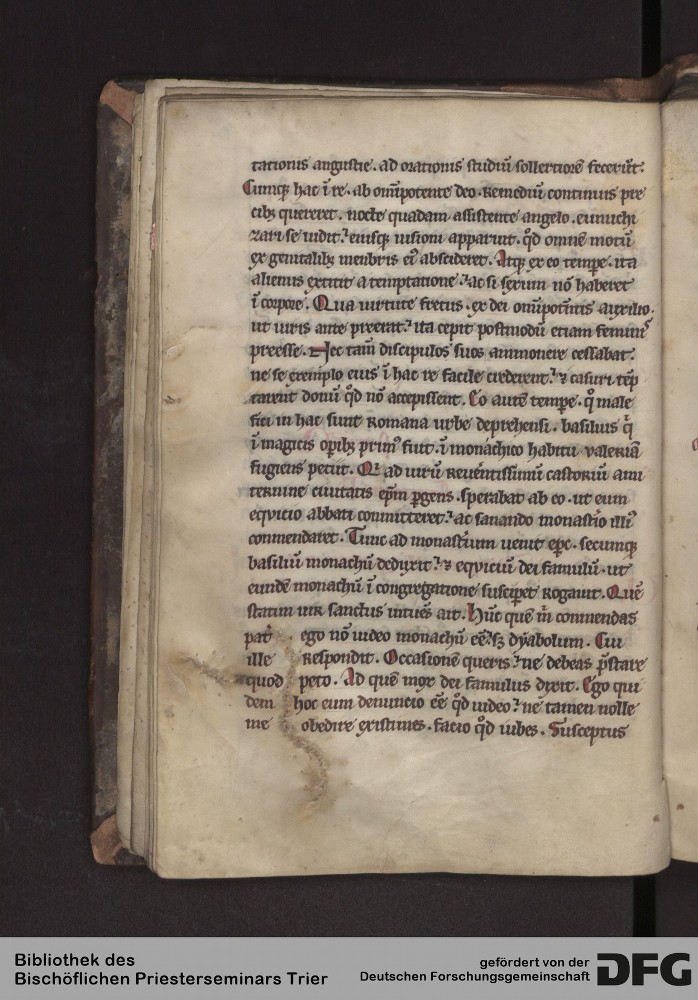 tationis angustie. ad orationis studiū sollertiorē fecer̄t.
Cumq; hac ī re. ab om̄ipotente deo. Remediū continuis pre
cib; quereret. nocte quadam assistente angelo. eunuchi
zari se uidit. eiusq; uisioni apparuit. qd̓ omnē motū
ex genitalib; menbris ei᷒ abscideret. Atq; ex eo tempe. ita
alienus extitit a temptatione. ac si sexum nō haberet
ī corpore. Qua uirtute fretus. ex dei om̄ipotentis auxilio.
ut uiris ante preerat. ita cepit postmodū etiam feminis
preesse. Nec tam̄ discipulos suos ammonere cessabat.
ne se exemplo eius ī hac re facile crederent. ⁊ casuri tēp
tarent donū qd̓ nō accepissent. Eo autē tempe. qͦ male
fici in hac sunt Romana urbe deprehensi. basilius qͥ
ī magicis opib; prim᷒ fuit. ī monachico habitu ualeriā
fugiens petiit. Qͥ ad uirū Reuerentissimū castoriū ami
ternine ciuitatis ep̄m pgens. sperabat ab eo. ut eum
eqvicio abbati conmitteret. ac sanando monastīo illi᷒
conmendaret. Tunc ad monastīum uenit ep̄c. secumq;
basiliū monachū deduxit. ⁊ eqviciū dei famulū. ut
eundē monachū ī congregatione suscipet Rogauit. Quē
statim uir sanctus intuēs ait. Hūc quē m̄ conmendas
pat̄ ego nō uideo monachū eē. s; dyabolum. Cui
ille Respondit. Occasionē queris. ne debeas p̄stare
quod peto. Ad quē mox dei famulus dixit. Ego qui
dem hoc eum denuncio eē qd̓ uideo. ne tamen nolle
me obedire existimes. facio qd̓ iubes. Susceptus
Bibliothek des
Bischöflichen Priesterseminars Trier
gefördert von der
Deutschen Forschungsgemeinschaft
DFG